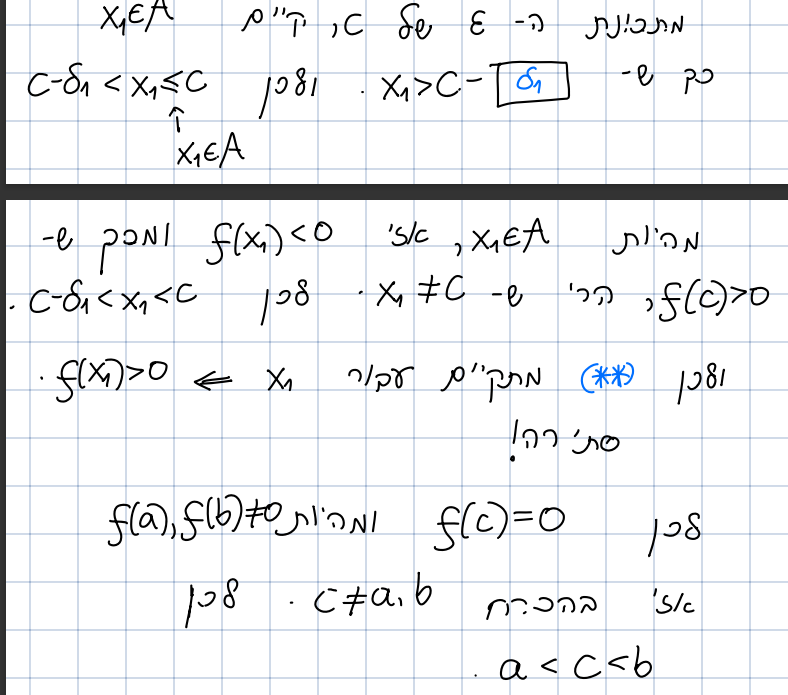 מתכונת ה- ε של c, קיים x₁∈A
כך ש- x₁>c- δ₁ . ולכן c-δ₁ < x₁ ≤ c
↑
x₁∈A
מהיות x₁∈A, אז' f(x₁)<0 ומכך ש-
f(c)>0, הרי ש- x₁≠c . לכן c-δ₁<x₁<c .
ולכן (**) מתקיים עבור x₁ ⇐ f(x₁)>0 .
סתירה!
לכן f(c)=0 ומהיות f(a),f(b)≠0
אז' בהכרח c≠a,b . לכן
a<c<b .